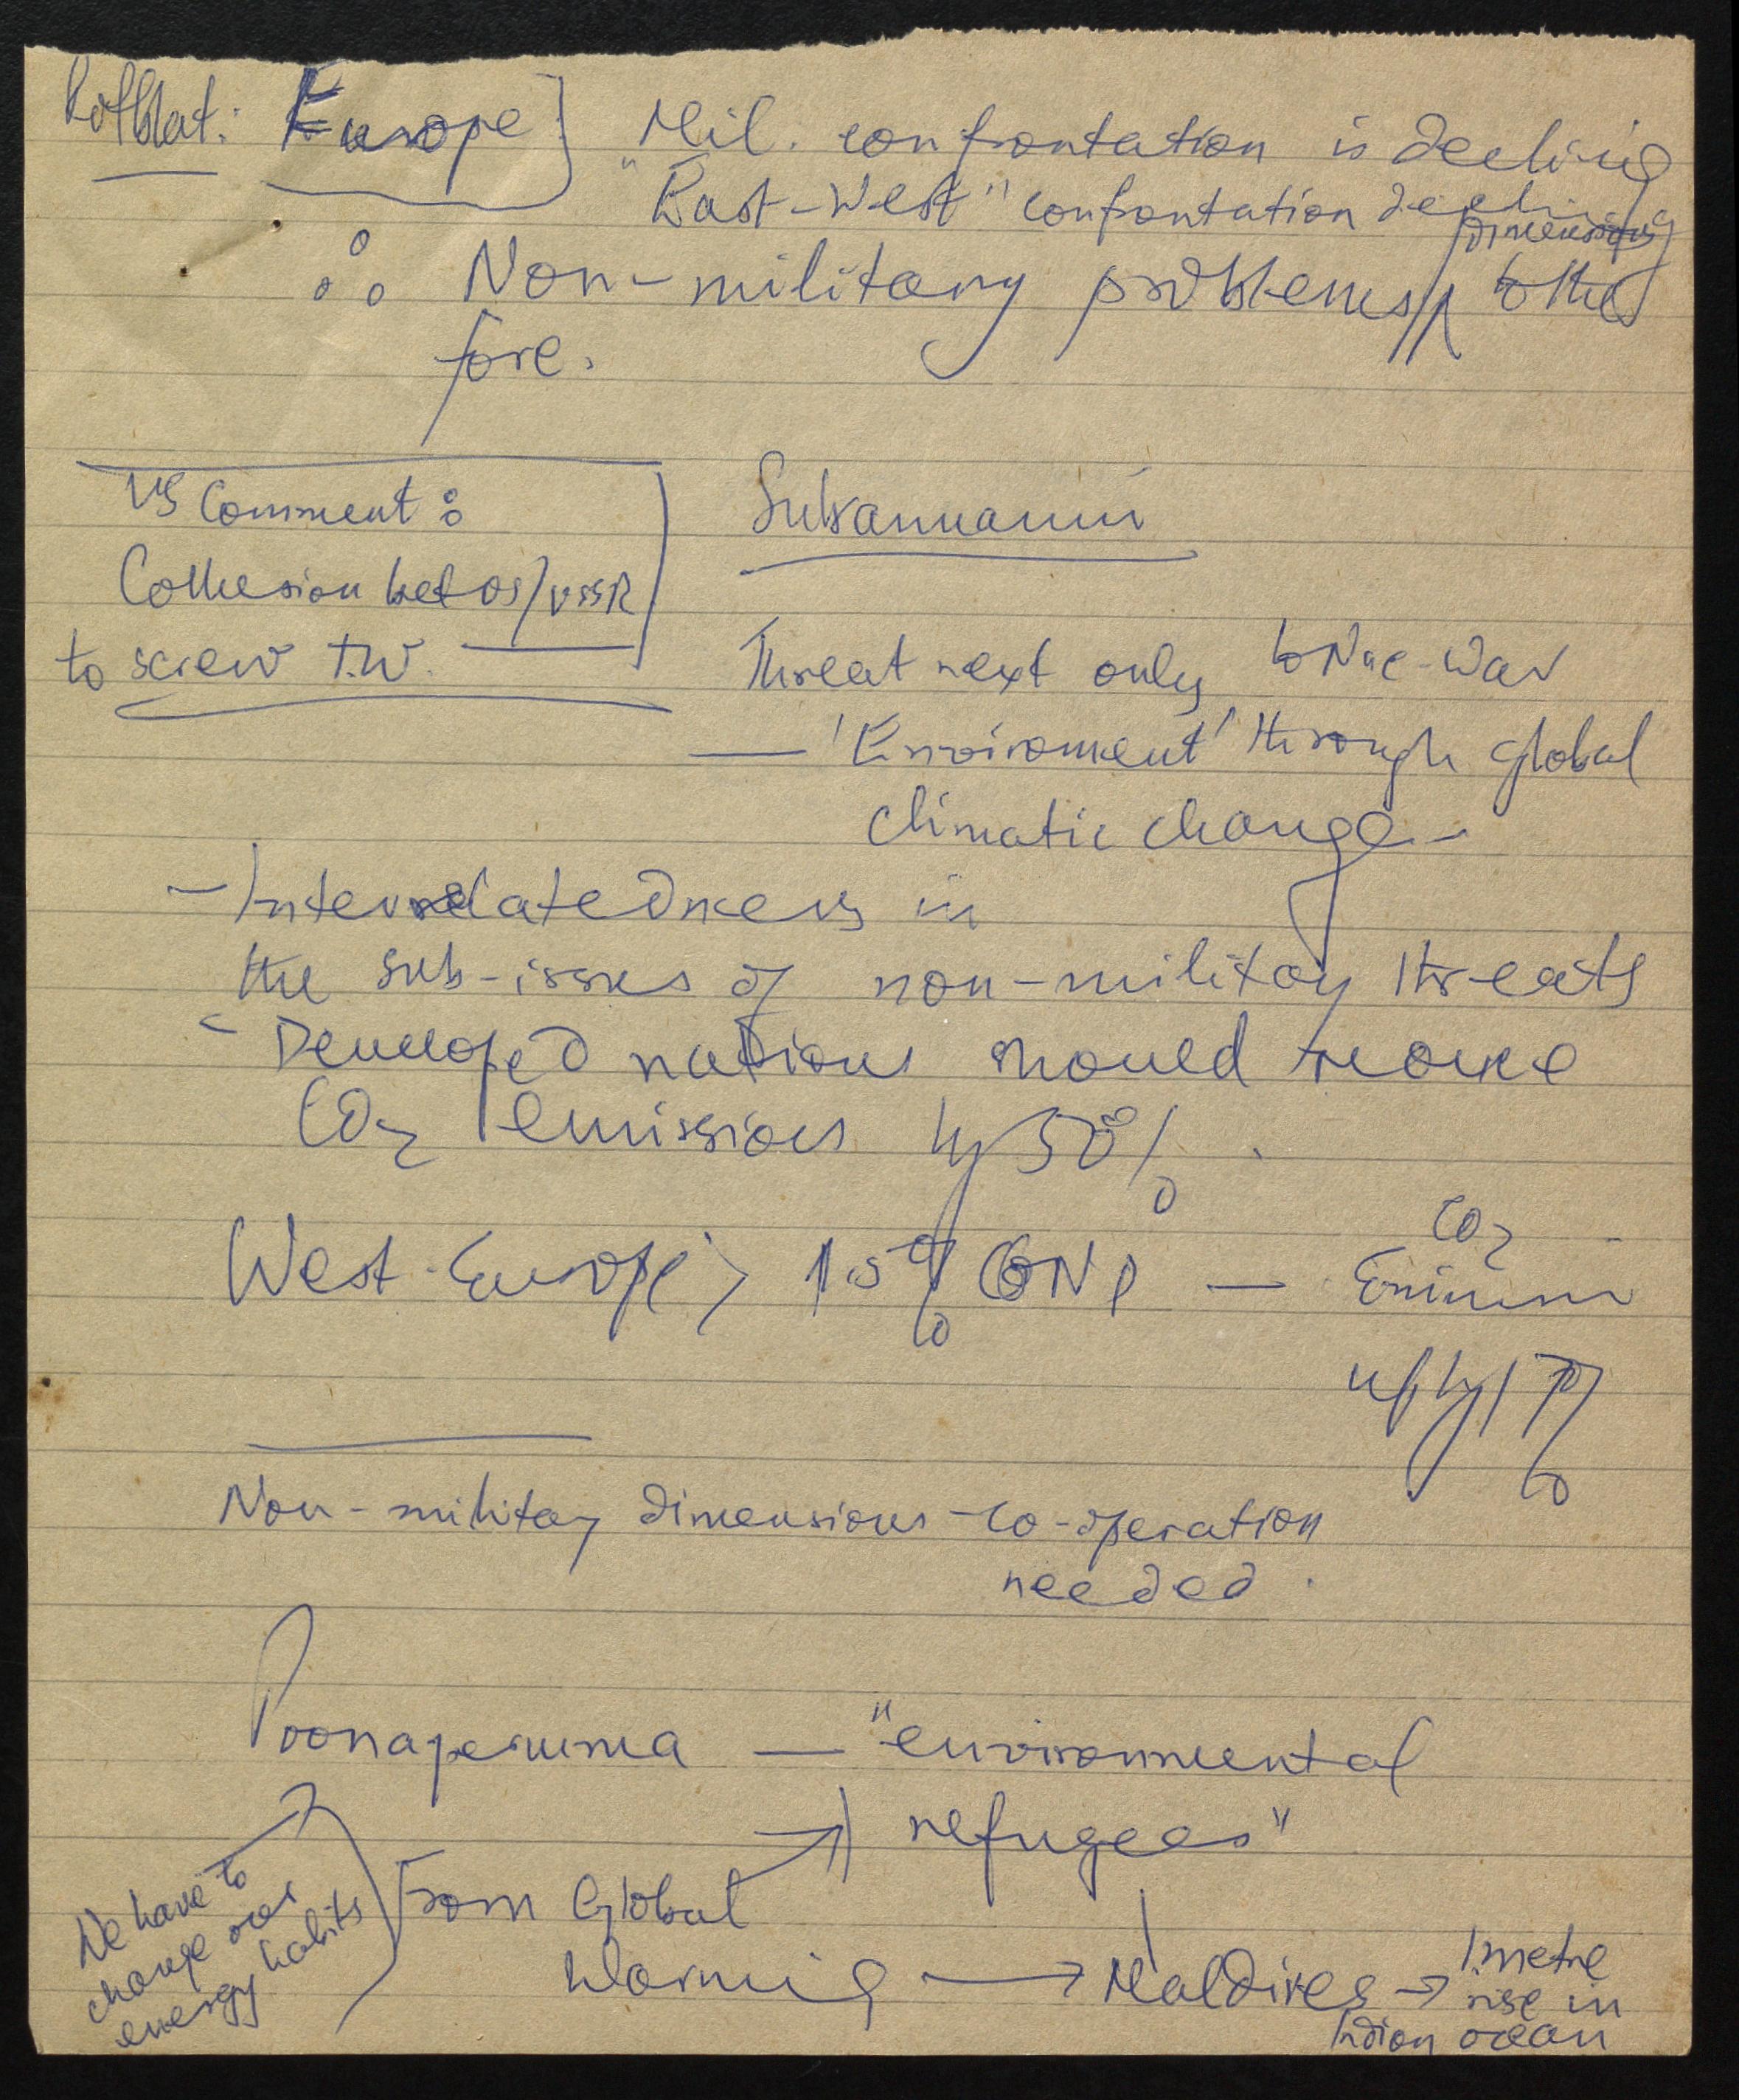 Rotblat: Europe] Mil. confrontation is declining
"East-West" confrontation declining
dimensions
∴ Non-military problems/ to the
fore.
VS Comment:
Collusion bet US/USSR
to screw T.W.
Subramanian
Threat next only to Nuc-War
— 'Enviroment' through global
climatic change -
- Interrelatedness in
the sub-issues of non-military threats
- Developed nations should reduce
CO2 emissions by 50%.
West Europe, 1.5% GNP — CO2
Emission
up by 1%
Non-military dimensions - co-operation
needed.
Poonaperuma — "environmental
refugees"
We have to
change our
energy habits
From Global
Warming → Maldives → 1 metre
rise in
Indian ocean